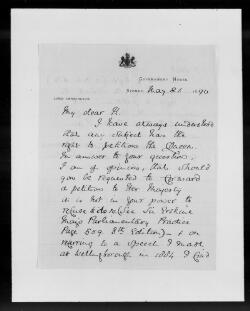 Government House,
Sydney, May 26 1890
My dear H.
I have always understood
that any subject has the
right to petition the Queen.
In answer to your question,
I am of opinion, that should
you be requested to forward
a petition to Her Majesty
it is not in your power to
refuse to do so (see Sir Erskine
Mays Parliamentary Practice
Page 609 8th Edition) & on
referring to a speech I made
at Wellingborough in 1884 I find